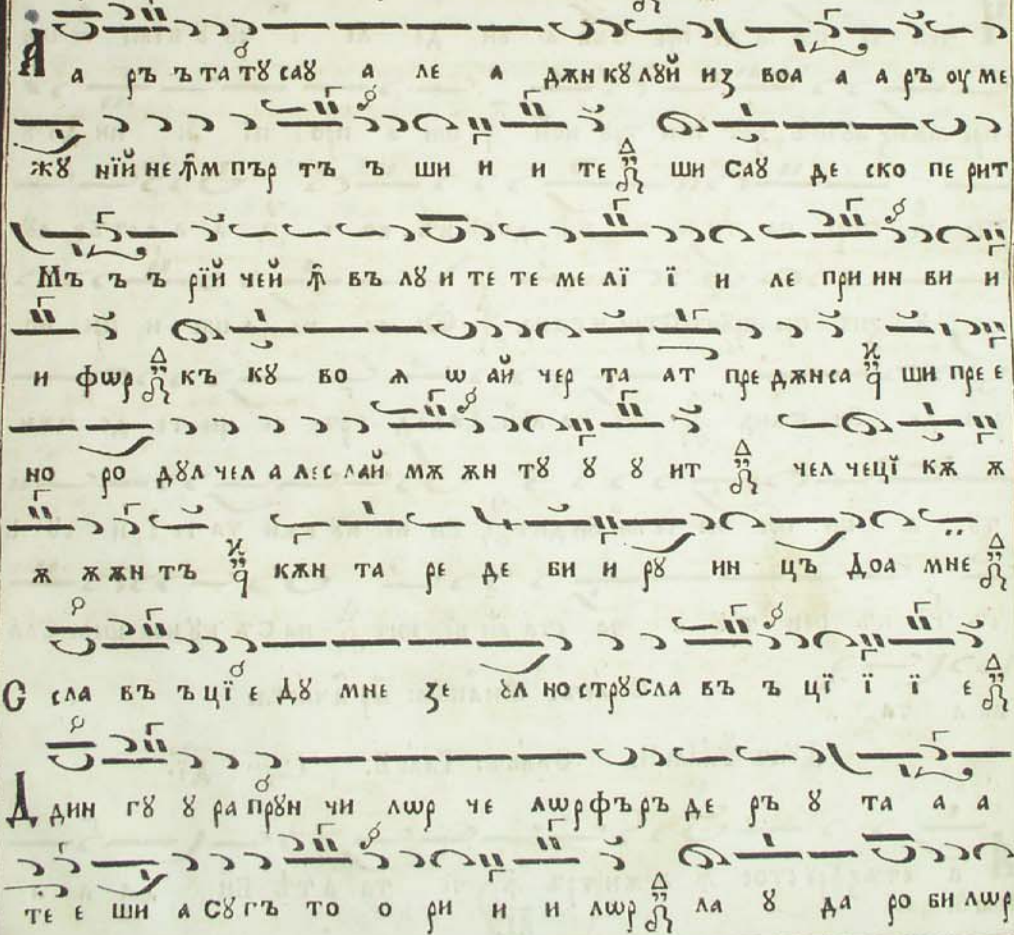 А а ръ ъ та тꙋ саꙋ а ле а джн кꙋ лꙋй из воа а а ръ оу ме
жꙋ нїй не ꙟм пър тъ ъ ши и и те ши Саꙋ де ско пе рит
Мъ ъ ъ рїй чей ꙟ въ лꙋ и те те ме лї ї и ле при ин ви и
и фѡр къ кꙋ во ѧ ѡ ай чер та ат пре джн са ши пре е
но ро дꙋл чел а лес лай мѫ жн тꙋ ꙋ ꙋ ит чел чецї кѫ ѫ
ѫ ѫ жн тъ кѫн та ре де би и рꙋ ин цъ Доа мне
С сла въ ъ цї е Дꙋ мне зе ꙋл но стрꙋ Сла въ ъ цї ї ї е
Д дин гꙋ ꙋ ра прꙋн чи лѡр че лѡр фъ ръ де ръ ꙋ та а а
те е ши а Сꙋ гъ то о ри и и лѡр ла ꙋ да ро би лѡр